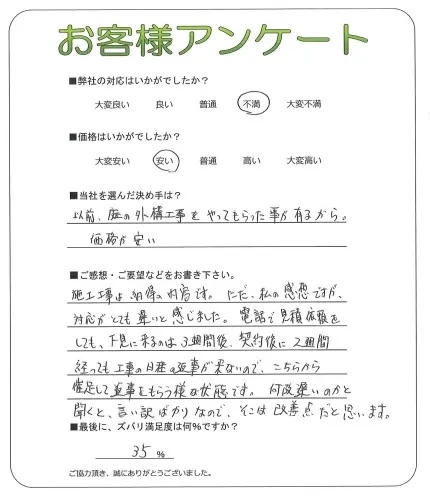 お客様アンケート
■弊社の対応はいかがでしたか？
大変良い 良い 普通 不満 大変不満
■価格はいかがでしたか？
大変安い 安い 普通 高い 大変高い
■当社を選んだ決め手は？
以前、庭の外構工事をやってもらった事が有るから。
価格が安い
■ご感想・ご要望などをお書き下さい。
施工工事は納得の内容です。ただ、私の感想ですが、
対応がとても遅いと感じました。電話で見積依頼を
しても、下見に来るのは3週間後、契約後に2週間
経っても工事の日程の返事が来ないので、こちらから
催促して返事をもらう様な状態です。何故遅いのかと
聞くと、言い訳ばかりなので、そこは改善点だと思います。
■最後に、ズバリ満足度は何％ですか？
35 %
ご協力頂き、誠にありがとうございました。